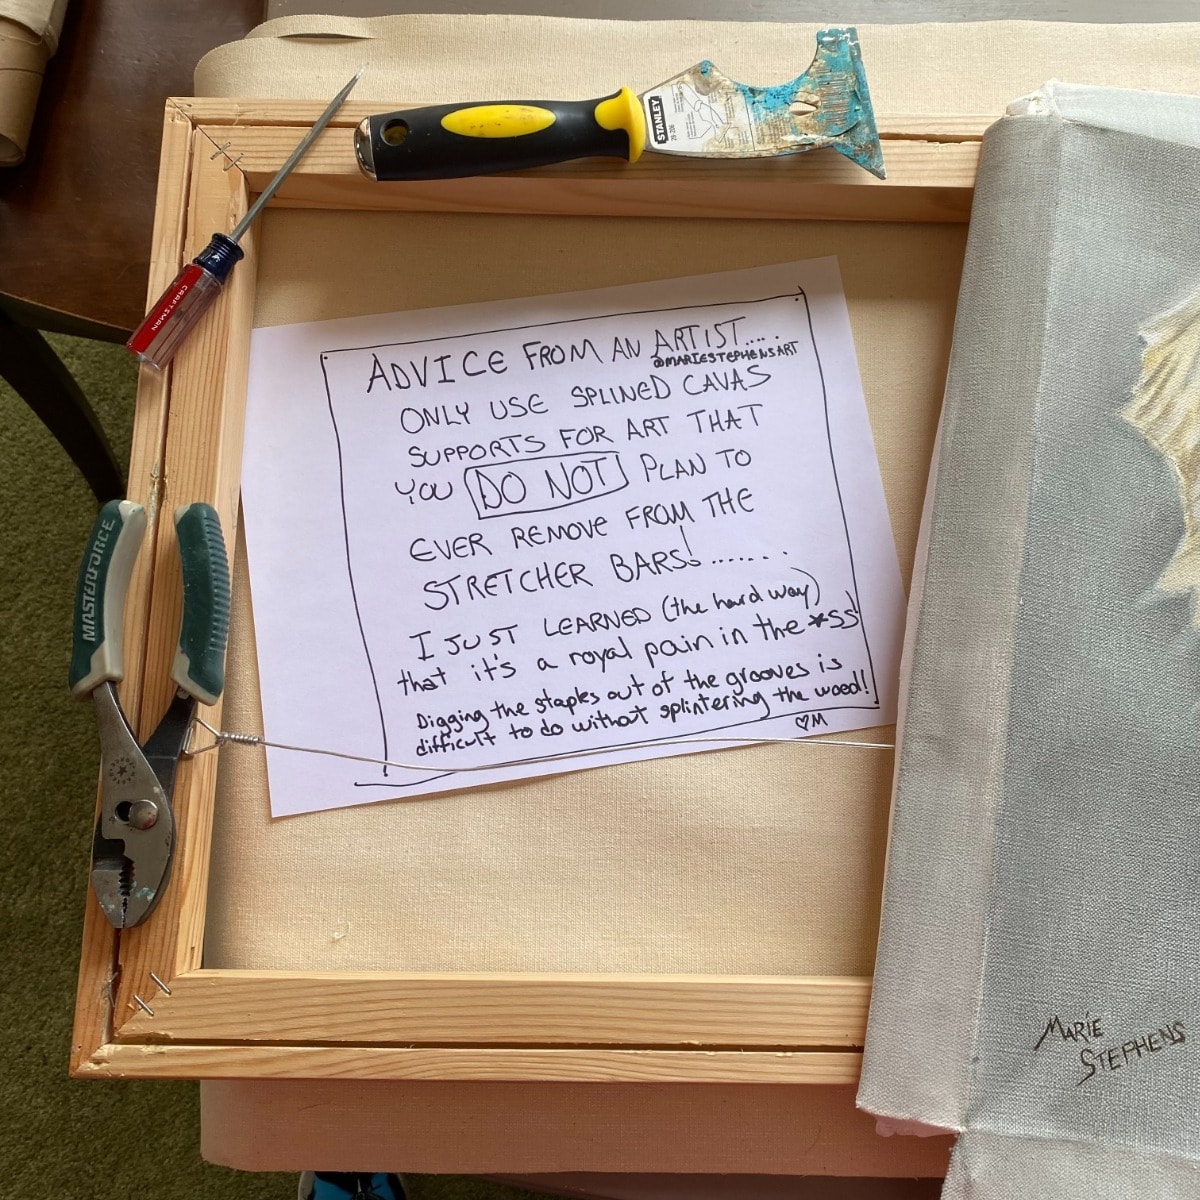 STANLEY
28-206
CRAFTSMAN
ADVICE FROM AN ARTIST.....
@MARIESTEPHENSART
ONLY USE SPLINED CAVAS
SUPPORTS FOR ART THAT
YOU DO NOT PLAN TO
EVER REMOVE FROM THE
STRETCHER BARS!.......
I JUST LEARNED (the hard way)
that it's a royal pain in the *ss!
Digging the staples out of the grooves is
difficult to do without splintering the wood!!
♡M
MASTERFORCE
MARIE
STEPHENS